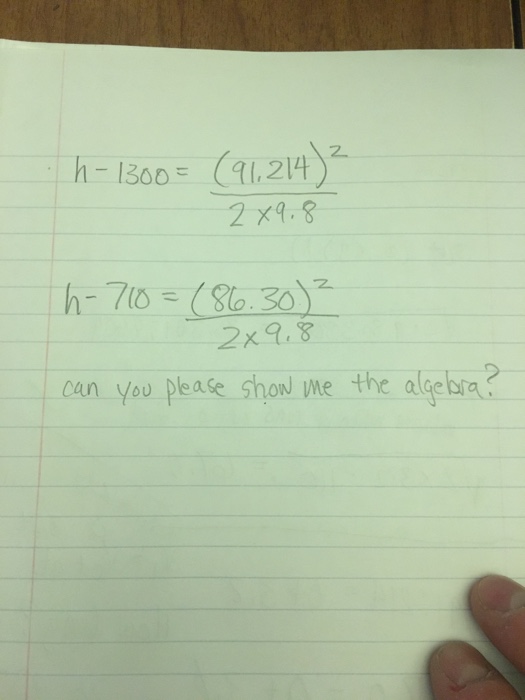 h - 1300 = (91.214)²
2 x 9.8
h - 710 = (86.30)²
2 x 9.8
can you please show me the algebra?